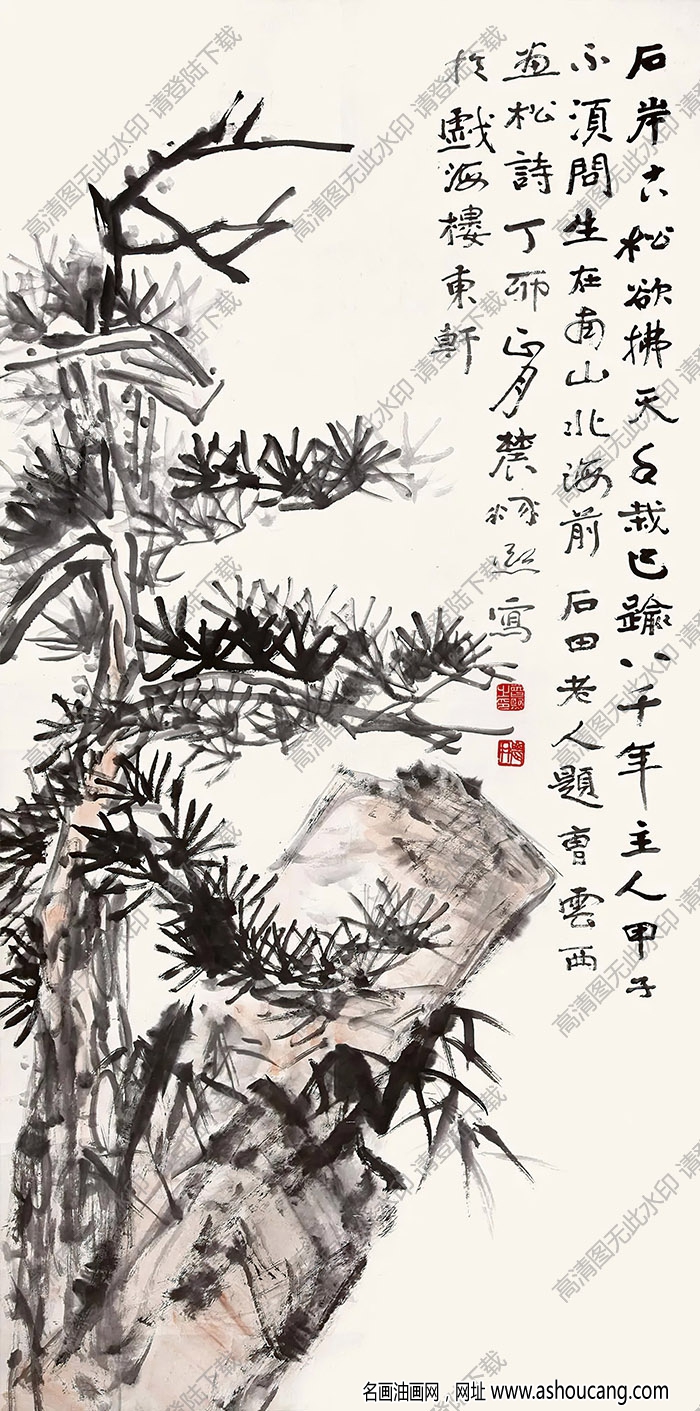 石岸古松欲拂天知栽已踰八千年主人甲子
不須問生在南山北海前 石田老人題曹雲西
畫松詩 丁卯正月農髯熙寫
於戲海樓東軒
高清图无此水印 请登陆下载
名画油画网，网址 www.ashoucang.com